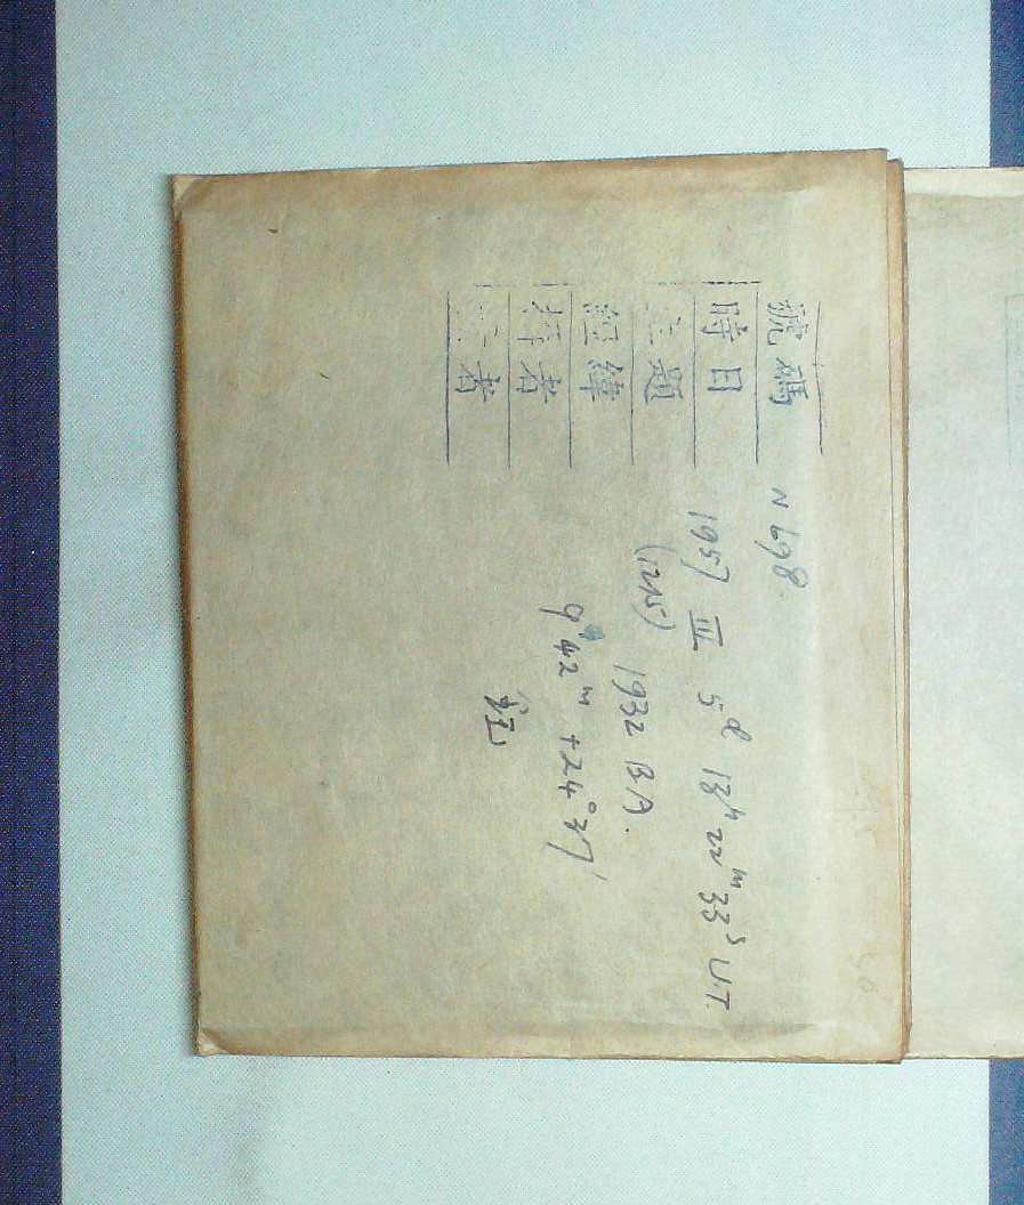 號碼 N 698
時日 1957 III 5d 13h 22m 33s U.T.
主題 (1215) 1932 BA.
經緯 9h 42m +24°37'
者
者